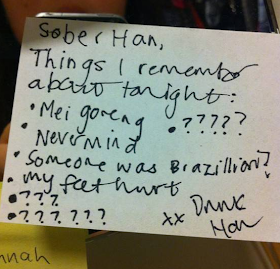 Sober Han,
Things I remember
about tonight:
• Mei goreng
• ?????
• Nevermind
• Someone was Brazillion?
• my feet hurt
• ???
• ??? ???
xx Drunk
Han
nnah